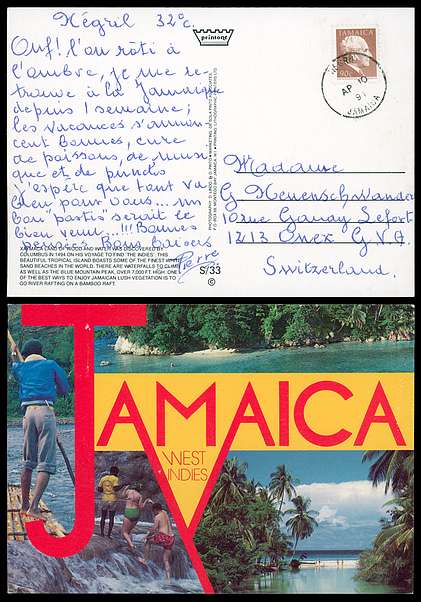 Négril 32°c.
Ouf! l'on rôti à
l'ombre, je me re-
trouve à la Jamaique
depuis 1 semaine;
les vacances s'annon
cent bonnes, cure
de poissons, de musi
que et de punchs
j'espère que tout va
bien pour vous... un
bon "pastis" serait le
bien venu...!!! Bonnes
pensées Bons baisers
Pierre
printex
JAMAICA
90c
NEGRIL
AP 10
91
JAMAICA
Madame
G Heuenschwander
10 rue Gavay Sefort
1213 Onex GVA.
Switzerland.
XAYMACA (LAND OF WOOD AND WATER) WAS DISCOVERED BY
COLUMBUS IN 1494 ON HIS VOYAGE TO FIND 'THE INDIES'. THIS
BEAUTIFUL TROPICAL ISLAND BOASTS SOME OF THE FINEST WHITE
SAND BEACHES IN THE WORLD. THERE ARE WATERFALLS TO CLIMB
AS WELL AS THE BLUE MOUNTAIN PEAK, OVER 7,000 FT. HIGH. ONE
OF THE BEST WAYS TO ENJOY JAMAICAN LUSH VEGETATION IS TO
GO RIVER RAFTING ON A BAMBOO RAFT.
S/33
©
JAMAICA
WEST
INDIES